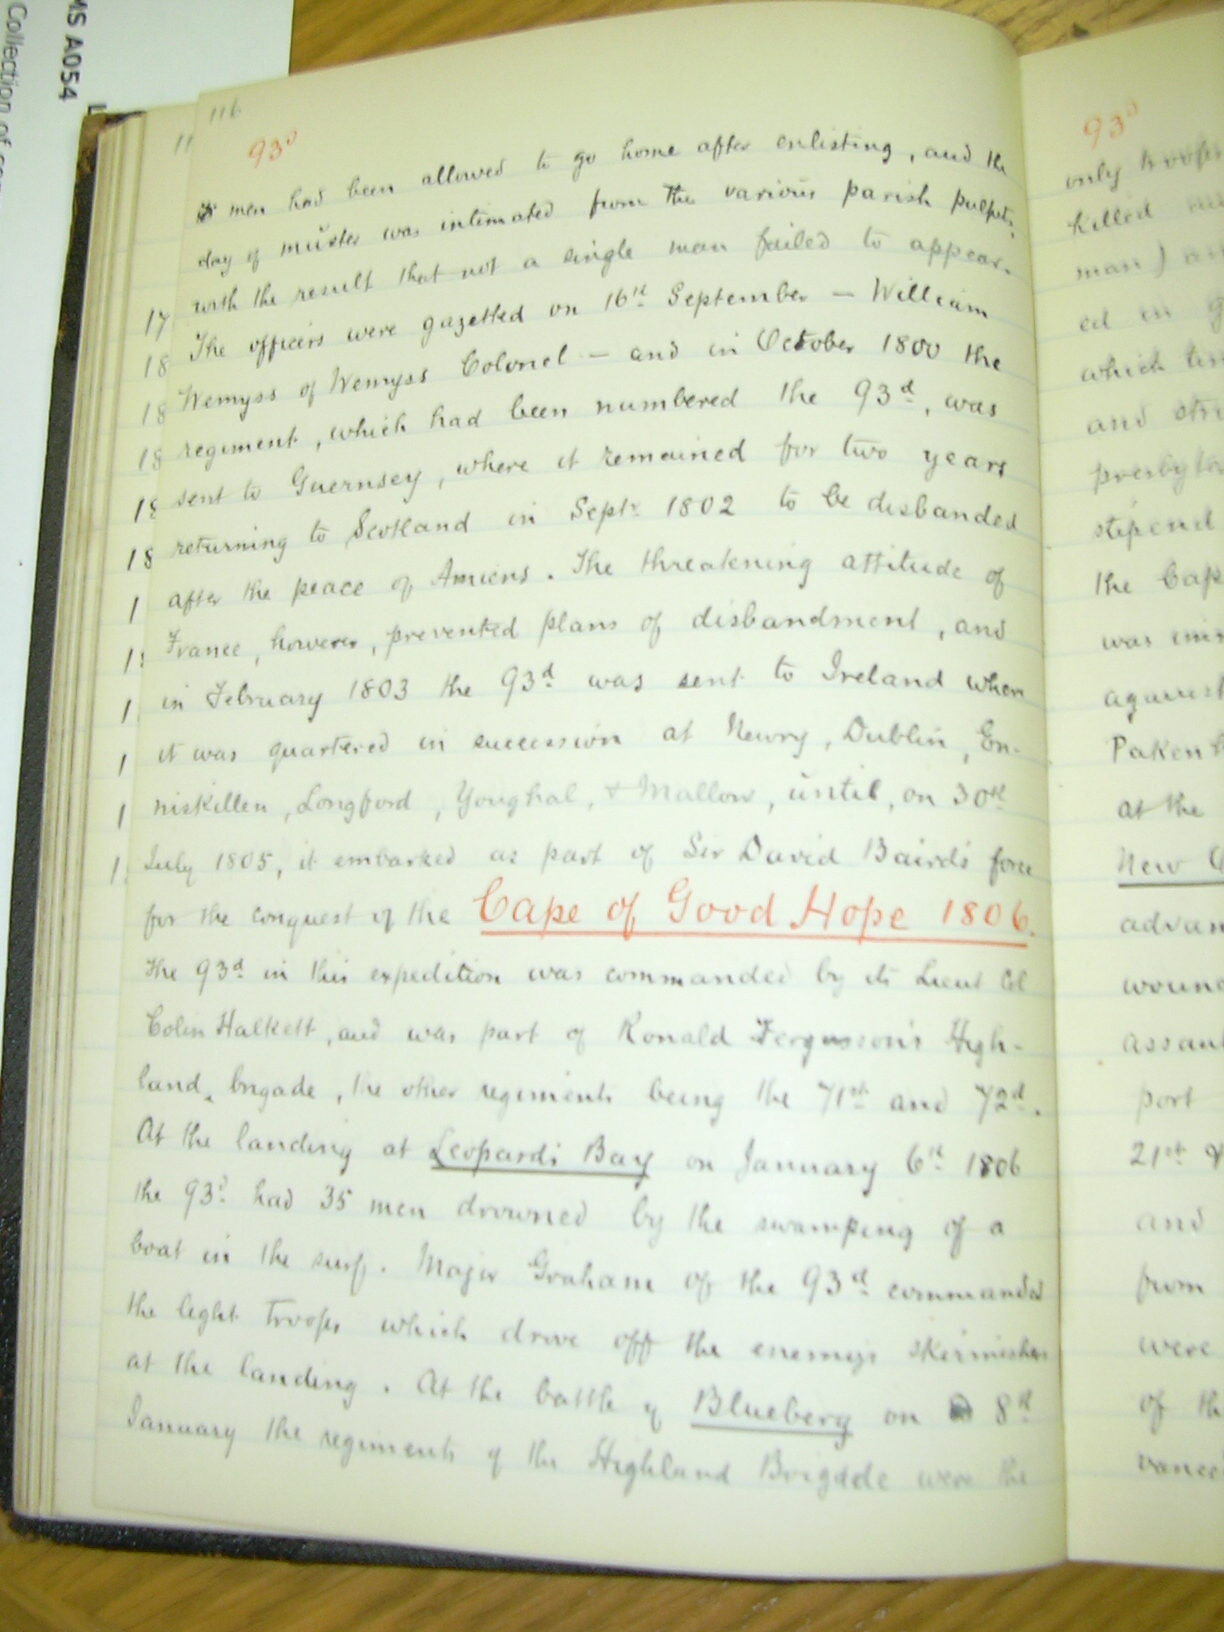 MS A054
Collection of
116
93d
men had been allowed to go home after enlisting, and the
day of muster was intimated from the various parish pulpits,
with the result that not a single man failed to appear.
The officers were gazetted on 16th September — William
Wemyss of Wemyss Colonel — and in October 1800 the
regiment, which had been numbered the 93d, was
sent to Guernsey, where it remained for two years
returning to Scotland in Septr 1802 to be disbanded
after the peace of Amiens. The threatening attitude of
France, however, prevented plans of disbandment, and
in February 1803 the 93d was sent to Ireland where
it was quartered in succession at Newry, Dublin, En-
niskillen, Longford, Youghal, + Mallow, until, on 30th
July 1805, it embarked as part of Sir David Baird's force
for the conquest of the Cape of Good Hope 1806.
The 93d in this expedition was commanded by its Lieut Col
Colin Halkett, and was part of Ronald Fergusson's High-
land, brigade, the other regiments being the 71st and 72d.
At the landing at Leopards Bay on January 6th 1806
the 93d had 35 men drowned by the swamping of a
boat in the surf. Major Graham of the 93d commanded
the light troops which drove off the enemys skirmishers
at the landing. At the battle of Blueberg on 8th
January the regiments of the Highland Brigade were the
93d
only troops
killed
man) an
ed in
which
and
presbyter
stipend
the Cap
was
against
Paken
at the
New O
advan
wound
assau
port
21st &
and
from
were
of th
vance